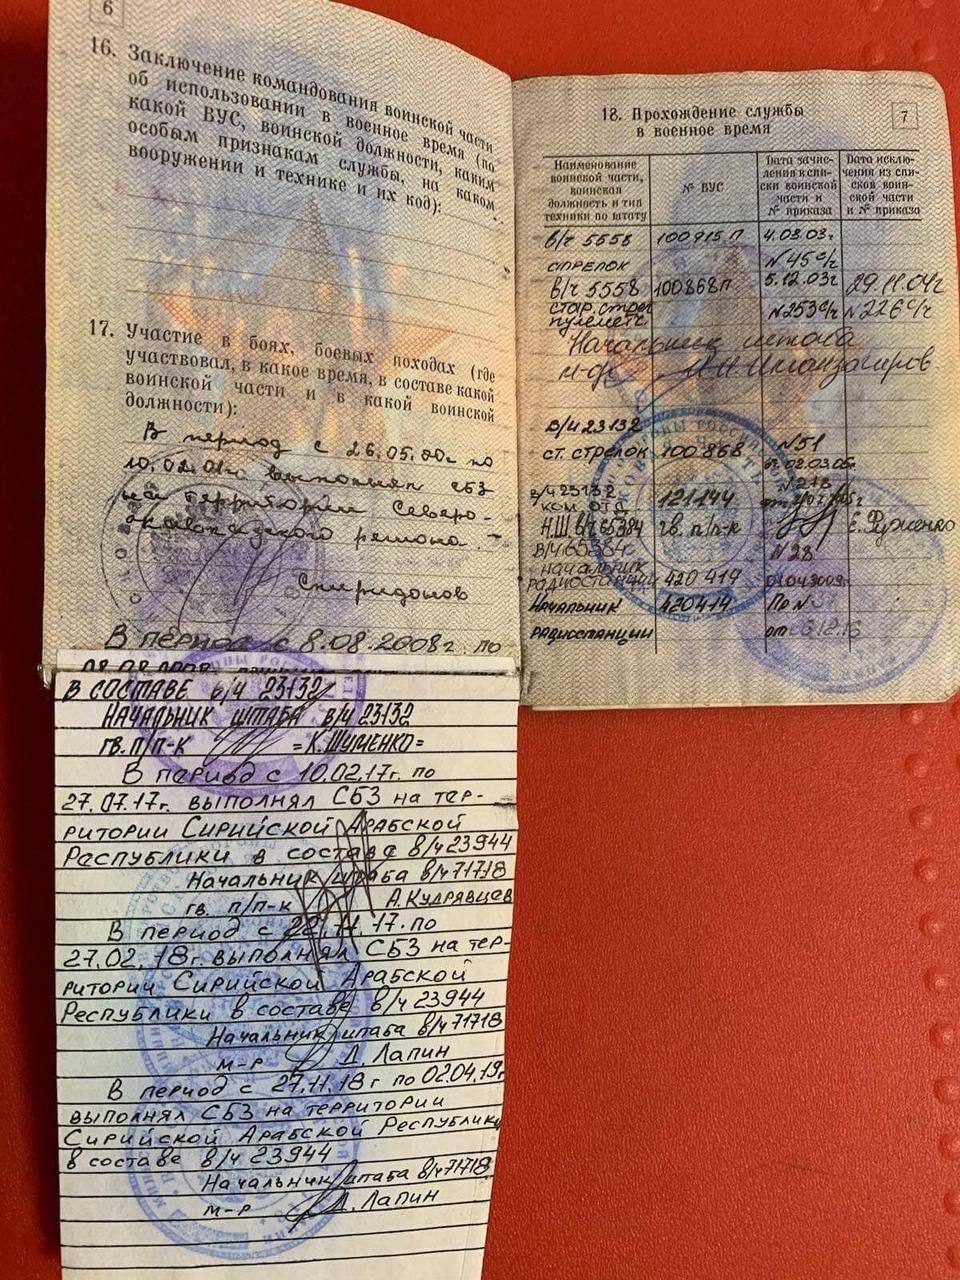 6
16. Заключение командования воинской части
об использовании в военное время (по
какой ВУС, воинской должности, каким
особым признакам службы, на каком
вооружении и технике и их код):
17. Участие в боях, боевых походах (где
участвовал, в какое время, в составе какой
воинской части и в какой воинской
должности):
В период с 26.05.00г по
10.02.01г выполнял СБЗ
на территории Северо-
кавказского региона.
Спиридонов
В период с 8.08.2008г. по
В СОСТАВЕ в/ч 23132
НАЧАЛЬНИК ШТАБА в/ч 23132
гв. п/п-к =К.Шуменко=
В период с 10.02.17г. по
27.07.17г. выполнял СБЗ на тер-
ритории Сирийской Арабской
Республики в состава в/ч 23944
Начальник штаба в/ч 71718
гв. п/п-к А.Кудрявцев
В период с 22.11.17. по
27.02.18г. выполнял СБЗ на тер-
ритории Сирийской Арабской
Республики в составе в/ч 23944
Начальник штаба в/ч 71718
м-р Д. Лапин
В период с 27.11.18г по 02.04.19г
выполнял СБЗ на территории
Сирийской Арабской Республики
в составе в/ч 23944
Начальник штаба в/ч 71718
м-р Д. Лапин
7
18. Прохождение службы
в военное время
Наименование воинской части, воинская должность и тип техники по штату
№ ВУС
Дата зачисления в списки воинской части и № приказа
Дата исключения из списков воинской части и № приказа
в/ч 5558 100915 П 4.03.03г
стрелок №45 с/ч
в/ч 5558 100868П 5.12.03г 29.11.04г
стар. стрел №253с/ч №226 с/ч
пулеметч.
Начальник штаба
м-р
в/ч 23132 №51
ст. стрелок 100868 от 02.03.05г
в/ч 23132 121144 №218
ком. отд.
Н.Ш. в/ч 65384 гв. п/п-к Е.Руженко
в/ч 65384 №28
начальник
радиостанции 420414 01.04.2009г
Начальник 420414 Пр №
радиостанции от